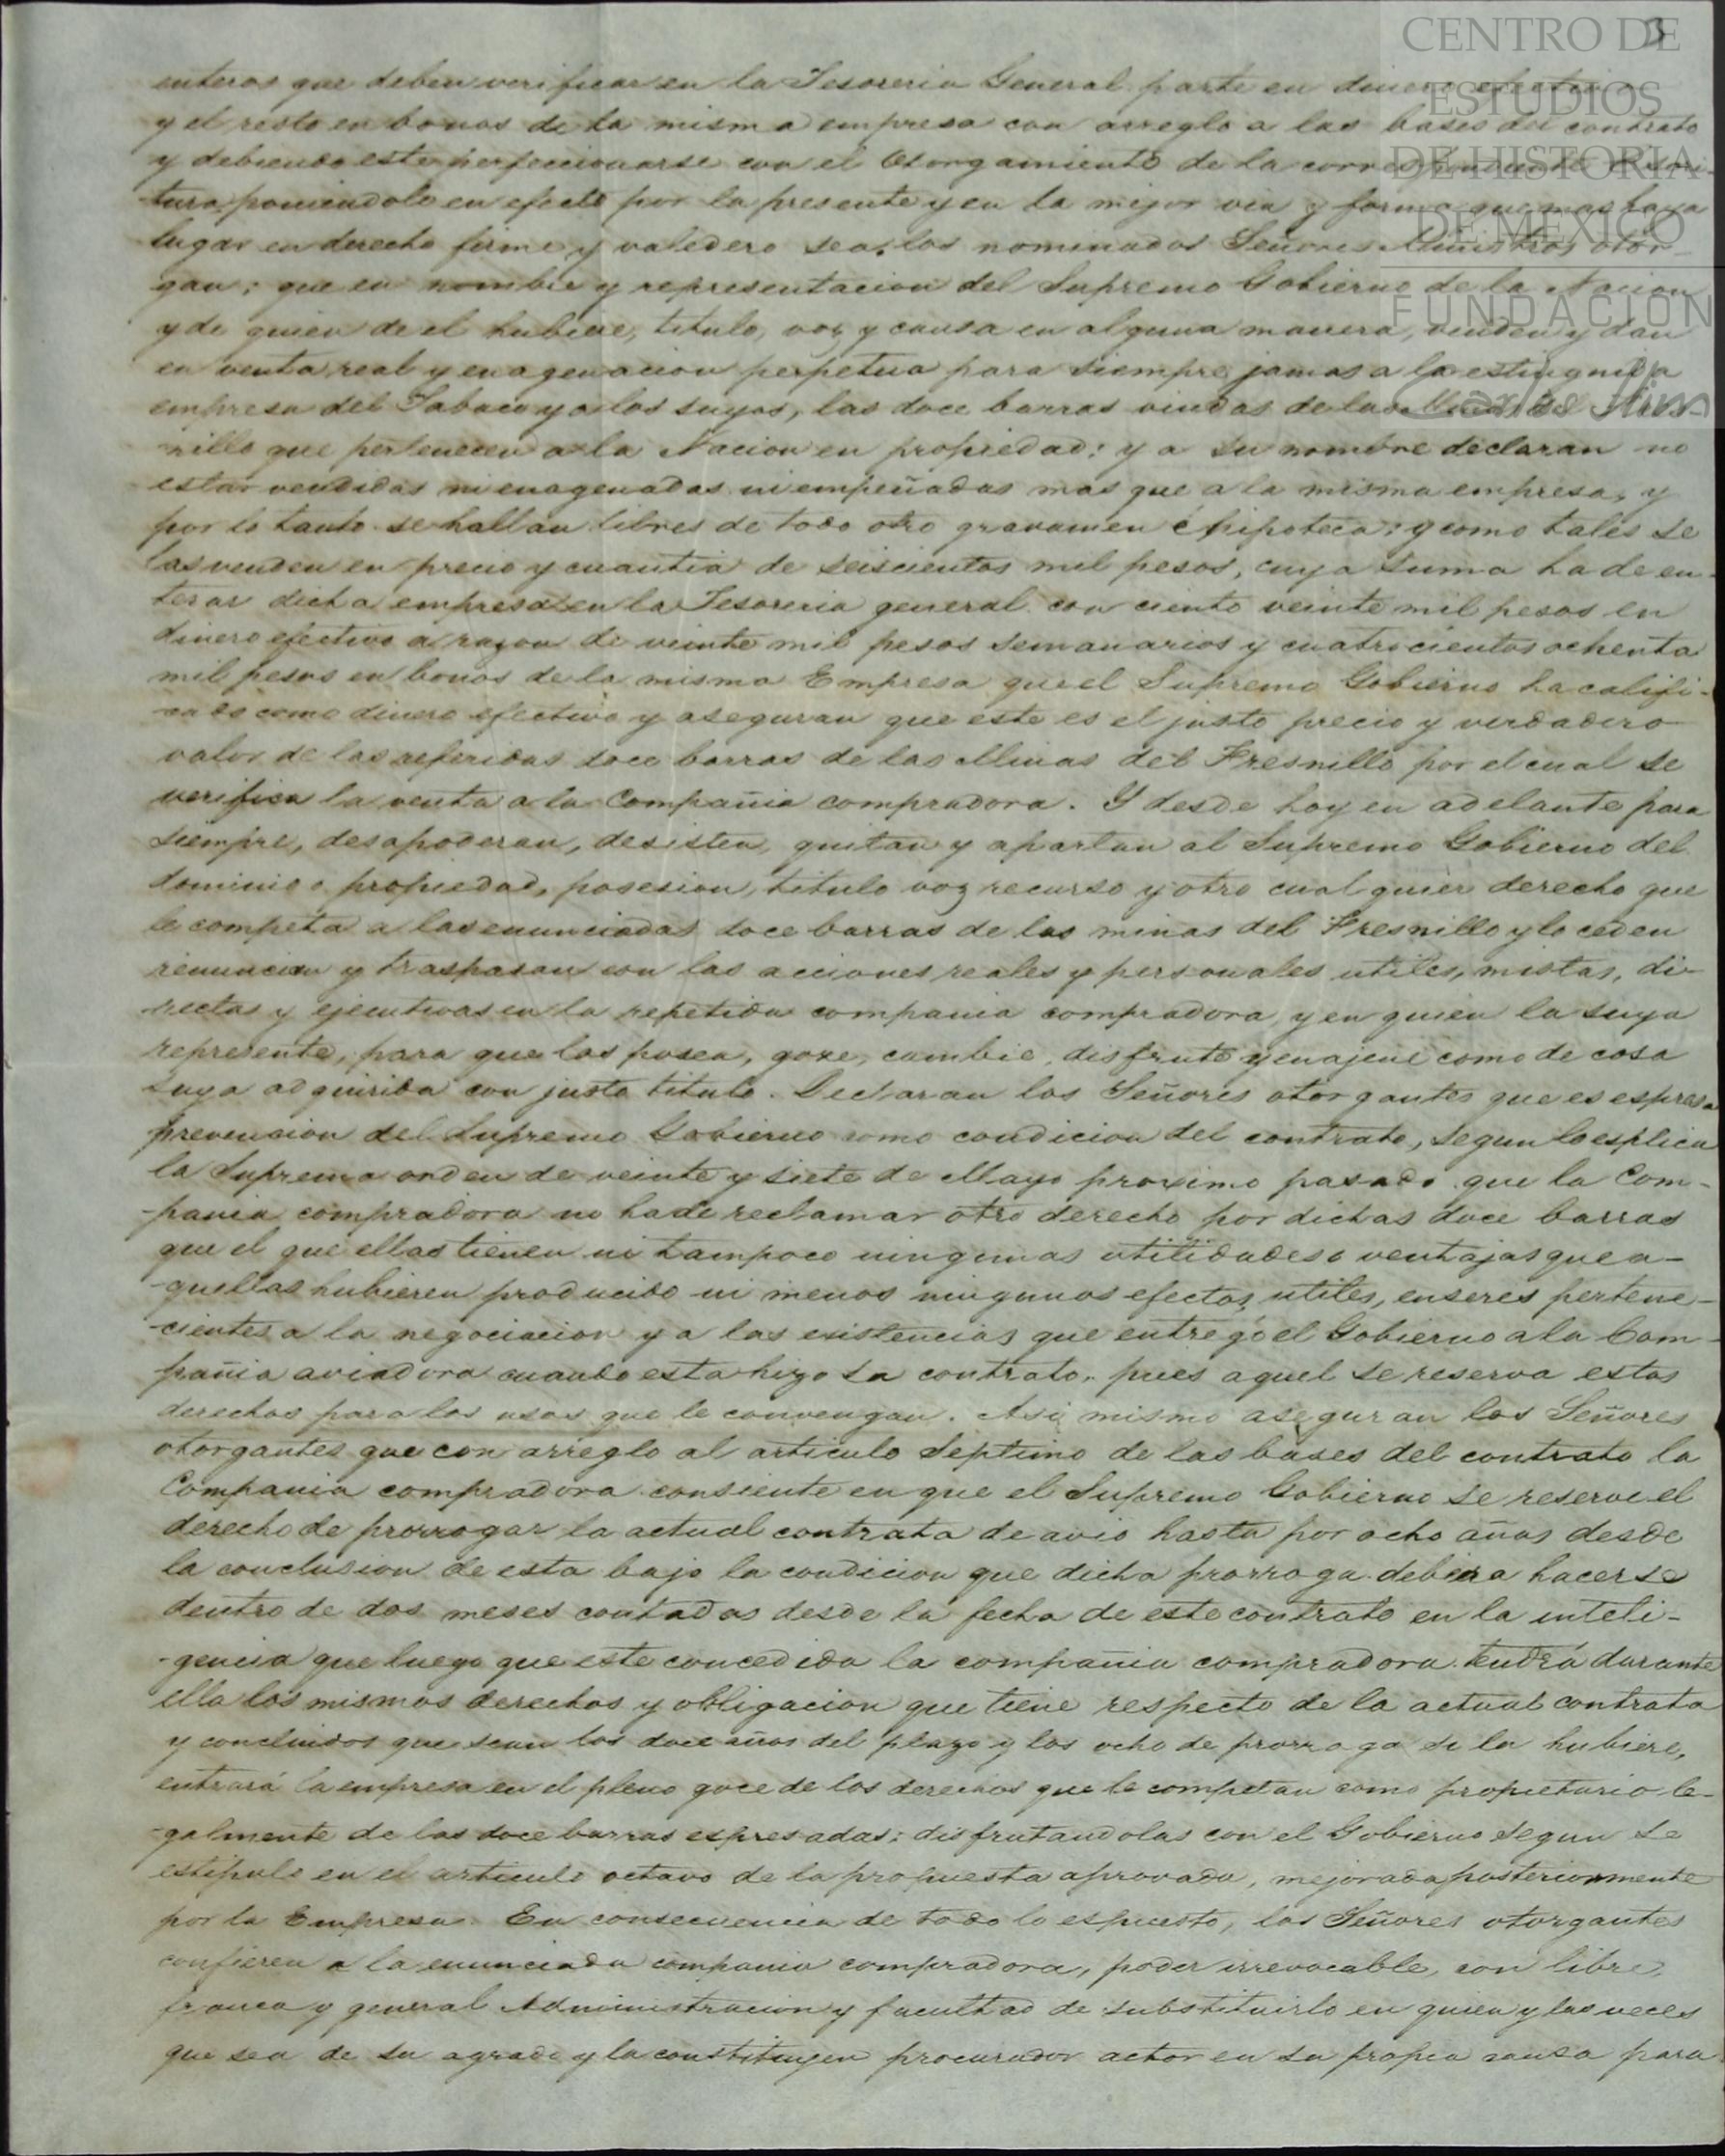 3
CENTRO DE
ESTUDIOS
DE HISTORIA
DE MEXICO
FUNDACIÓN
Carlos Slim
enteros que deben verificar en la Tesoreria General parte en dinero efectivo
y el resto en bonos de la misma empresa con arreglo a las bases del contrato
y debiendo este perfeccionarse con el Otorgamiento de la correspondiente escri-
tura, poniendolo en efecto por la presente y en la mejor via y forma que mas haya
lugar en derecho firme y valedero sea, los nominados Señores Ministros otor-
gan; que en nombre y representacion del Supremo Gobierno de la Nacion
y de quien de el hubiere, titulo, voz y causa en alguna manera, venden y dan
en venta real y enagenacion perpetua para siempre jamas a la estinguida
empresa del Tabaco y a los suyos, las doce barras viudas de las Minas del Fres-
nillo que pertenecen a la Nacion en propiedad; y a su nombre declaran no
estar vendidas ni enagenadas ni empeñadas mas que a la misma empresa, y
por lo tanto se hallan libres de todo otro gravamen é hipoteca; y como tales se
las venden en precio y cuantia de seiscientos mil pesos, cuya suma ha de en-
terar dicha empresa en la Tesoreria general con ciento veinte mil pesos en
dinero efectivo a razon de veinte mil pesos semanarios y cuatrocientos ochenta
mil pesos en bonos de la misma Empresa que el Supremo Gobierno ha califi-
cado como dinero efectivo y aseguran que este es el justo precio y verdadero
valor de las referidas doce barras de las Minas del Fresnillo por el cual se
verifica la venta a la Compañia compradora. Y desde hoy en adelante para
siempre, desapoderan, desisten, quitan y apartan al Supremo Gobierno del
dominio o propiedad, posesion, titulo voz recurso y otro cualquier derecho que
le competa a las enunciadas doce barras de las minas del Fresnillo y lo ceden
renuncian y traspasan con las acciones reales y personales utiles, mistas, di-
rectas y ejecutivas en la repetida compania compradora, y en quien la suya
represente, para que las posea, goze, cambie, disfrute y enajene como de cosa
suya adquirida con justo titulo. Declaran los Señores otorgantes que es espresa
prevencion del Supremo Gobierno como condicion del contrato, segun lo esplica
la Suprema orden de veinte y siete de Mayo proximo pasado que la Com-
-pania compradora no ha de reclamar otro derecho por dichas doce barras
que el que ellas tienen ni tampoco ningunas utilidades o ventajas que a-
-quellas hubieren producido ni menos ningunos efectos, utiles, enseres pertene-
-cientes a la negociacion y a las existencias que entregó el Gobierno a la Com-
pañia aviadora cuando esta hizo su contrato, pues aquel se reserva estos
derechos para los usos que le convengan. Asi mismo aseguran los Señores
otorgantes que con arreglo al articulo Septimo de las bases del contrato la
Compania compradora consiente en que el Supremo Gobierno se reserve el
derecho de prorrogar la actual contrata de avio hasta por ocho años desde
la conclusion de esta bajo la condicion que dicha prorroga debiera hacerse
dentro de dos meses contados desde la fecha de este contrato en la inteli-
-gencia que luego que este concedida la compañia compradora tendrá durante
ella los mismos derechos y obligacion que tiene respecto de la actual contrata
y concluidos que sean los doce años del plazo y los ocho de prorroga si la hubiere,
entrará la empresa en el pleno goce de los derechos que le competan como propietario le-
-galmente de las doce barras espresadas; disfrutandolas con el Gobierno segun se
estipulo en el articulo octavo de la propuesta aprovada, mejorada posteriormente
por la Empresa. En consecuencia de todo lo espuesto, los Señores otorgantes
confieren a la enunciada compania compradora, poder irrevocable, con libre,
franca y general Administracion y facultad de substituirlo en quien y las veces
que sea de su agrado y la constituyen procurador actor en su propia causa para